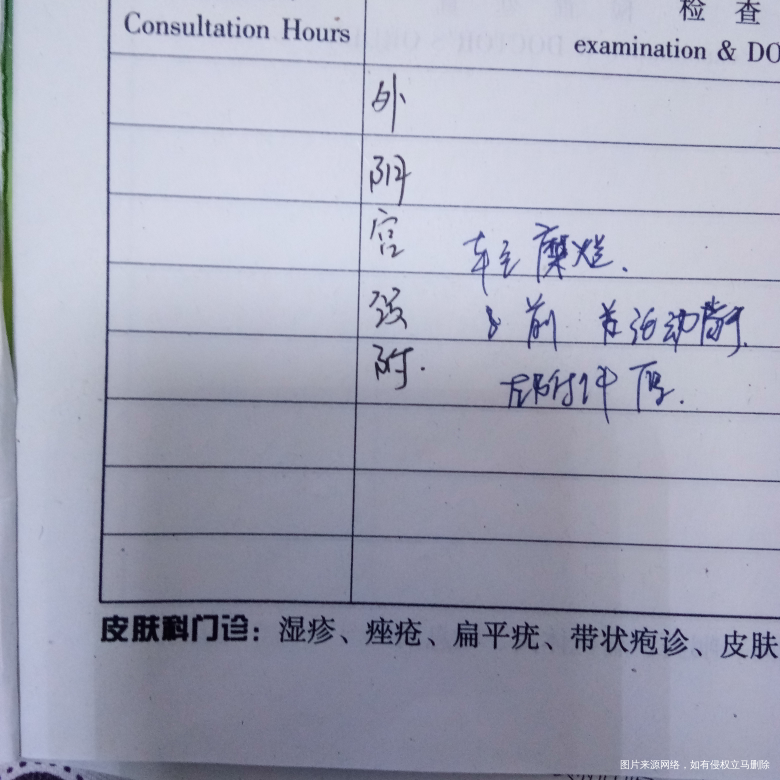 检 查
Consultation Hours
examination & DO
外
阴
宫 轻度 糜烂.
前 活动
附. 左附件 厚.
皮肤科门诊：湿疹、痤疮、扁平疣、带状疱诊、皮肤
图片来源网络，如有侵权立马删除